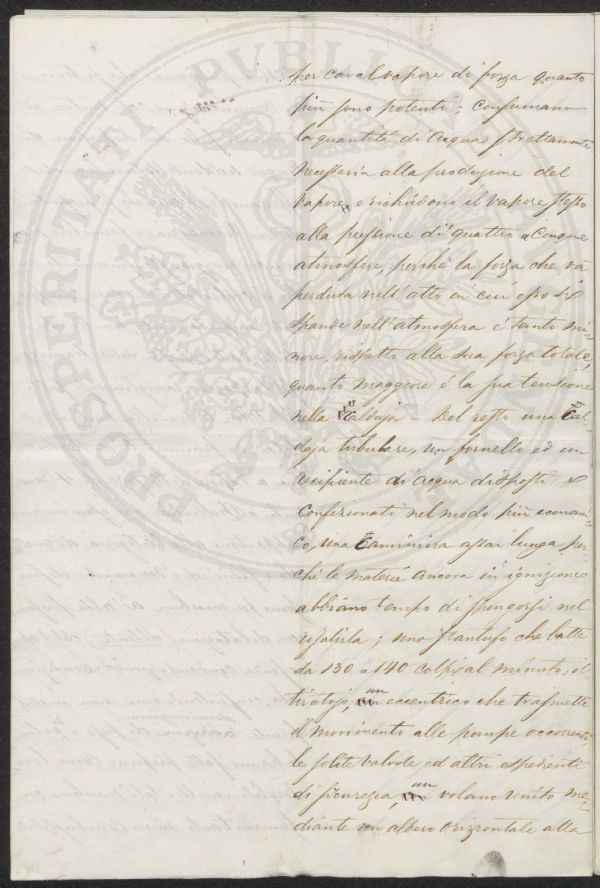 PROSPERITATI PVBLICAE
per caval vapore di forza quanto
più sono potenti; consumano
la quantità di acqua strettamente
necessaria alla produzione del
vapore, e richiudono il vapore stesso
alla pressione di quattro a cinque
atmosfere, perché la forza che va
perduta nell'atto in cui esso si
spande nell'atmosfera è tanto mi-
nore, rispetto alla sua forza totale,
quanto maggiore è la sua tensione
nella Caldaja - Del resto una Cal-
daja tubulare, un fornello ed un
recipiente di acqua disposti e
confezionati nel modo più economi-
co, una Camminiera assai lunga per-
ché le materie ancora in ignizione
abbiano tempo di spengersi nel
risalirla; uno stantufo che batte
da 130 a 140 colpi al minuto, il
tiratojo, un eccentrico che trasmette
il movimento alle pompe occorrenti,
le solite valvole ed altri espedienti
di sicurezza, un volano unito me-
diante un albero orizzontale alla